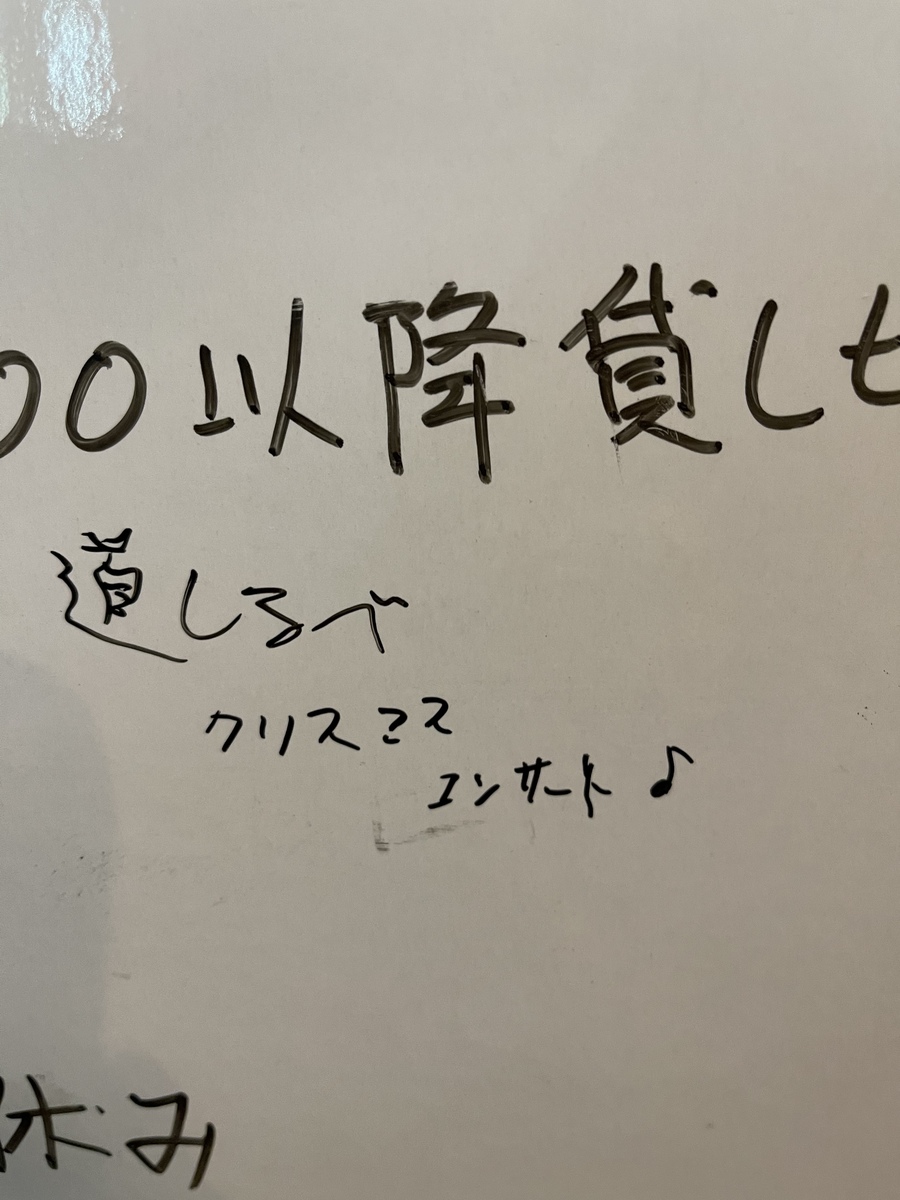 00以降貸しt
道しるべ
クリスマス
コンサート♪
休み